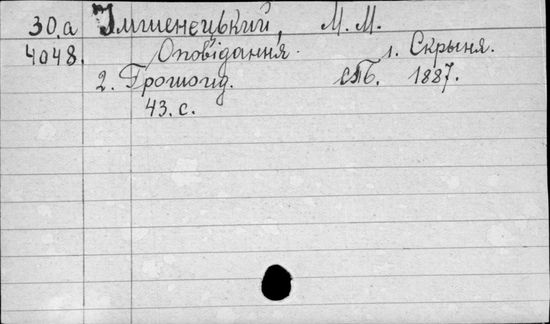 30.а Імшенецький, М. М.
4048. Оповідання. 1. Скрыня.
2. Грошогид. СПБ. 1887.
43. с.